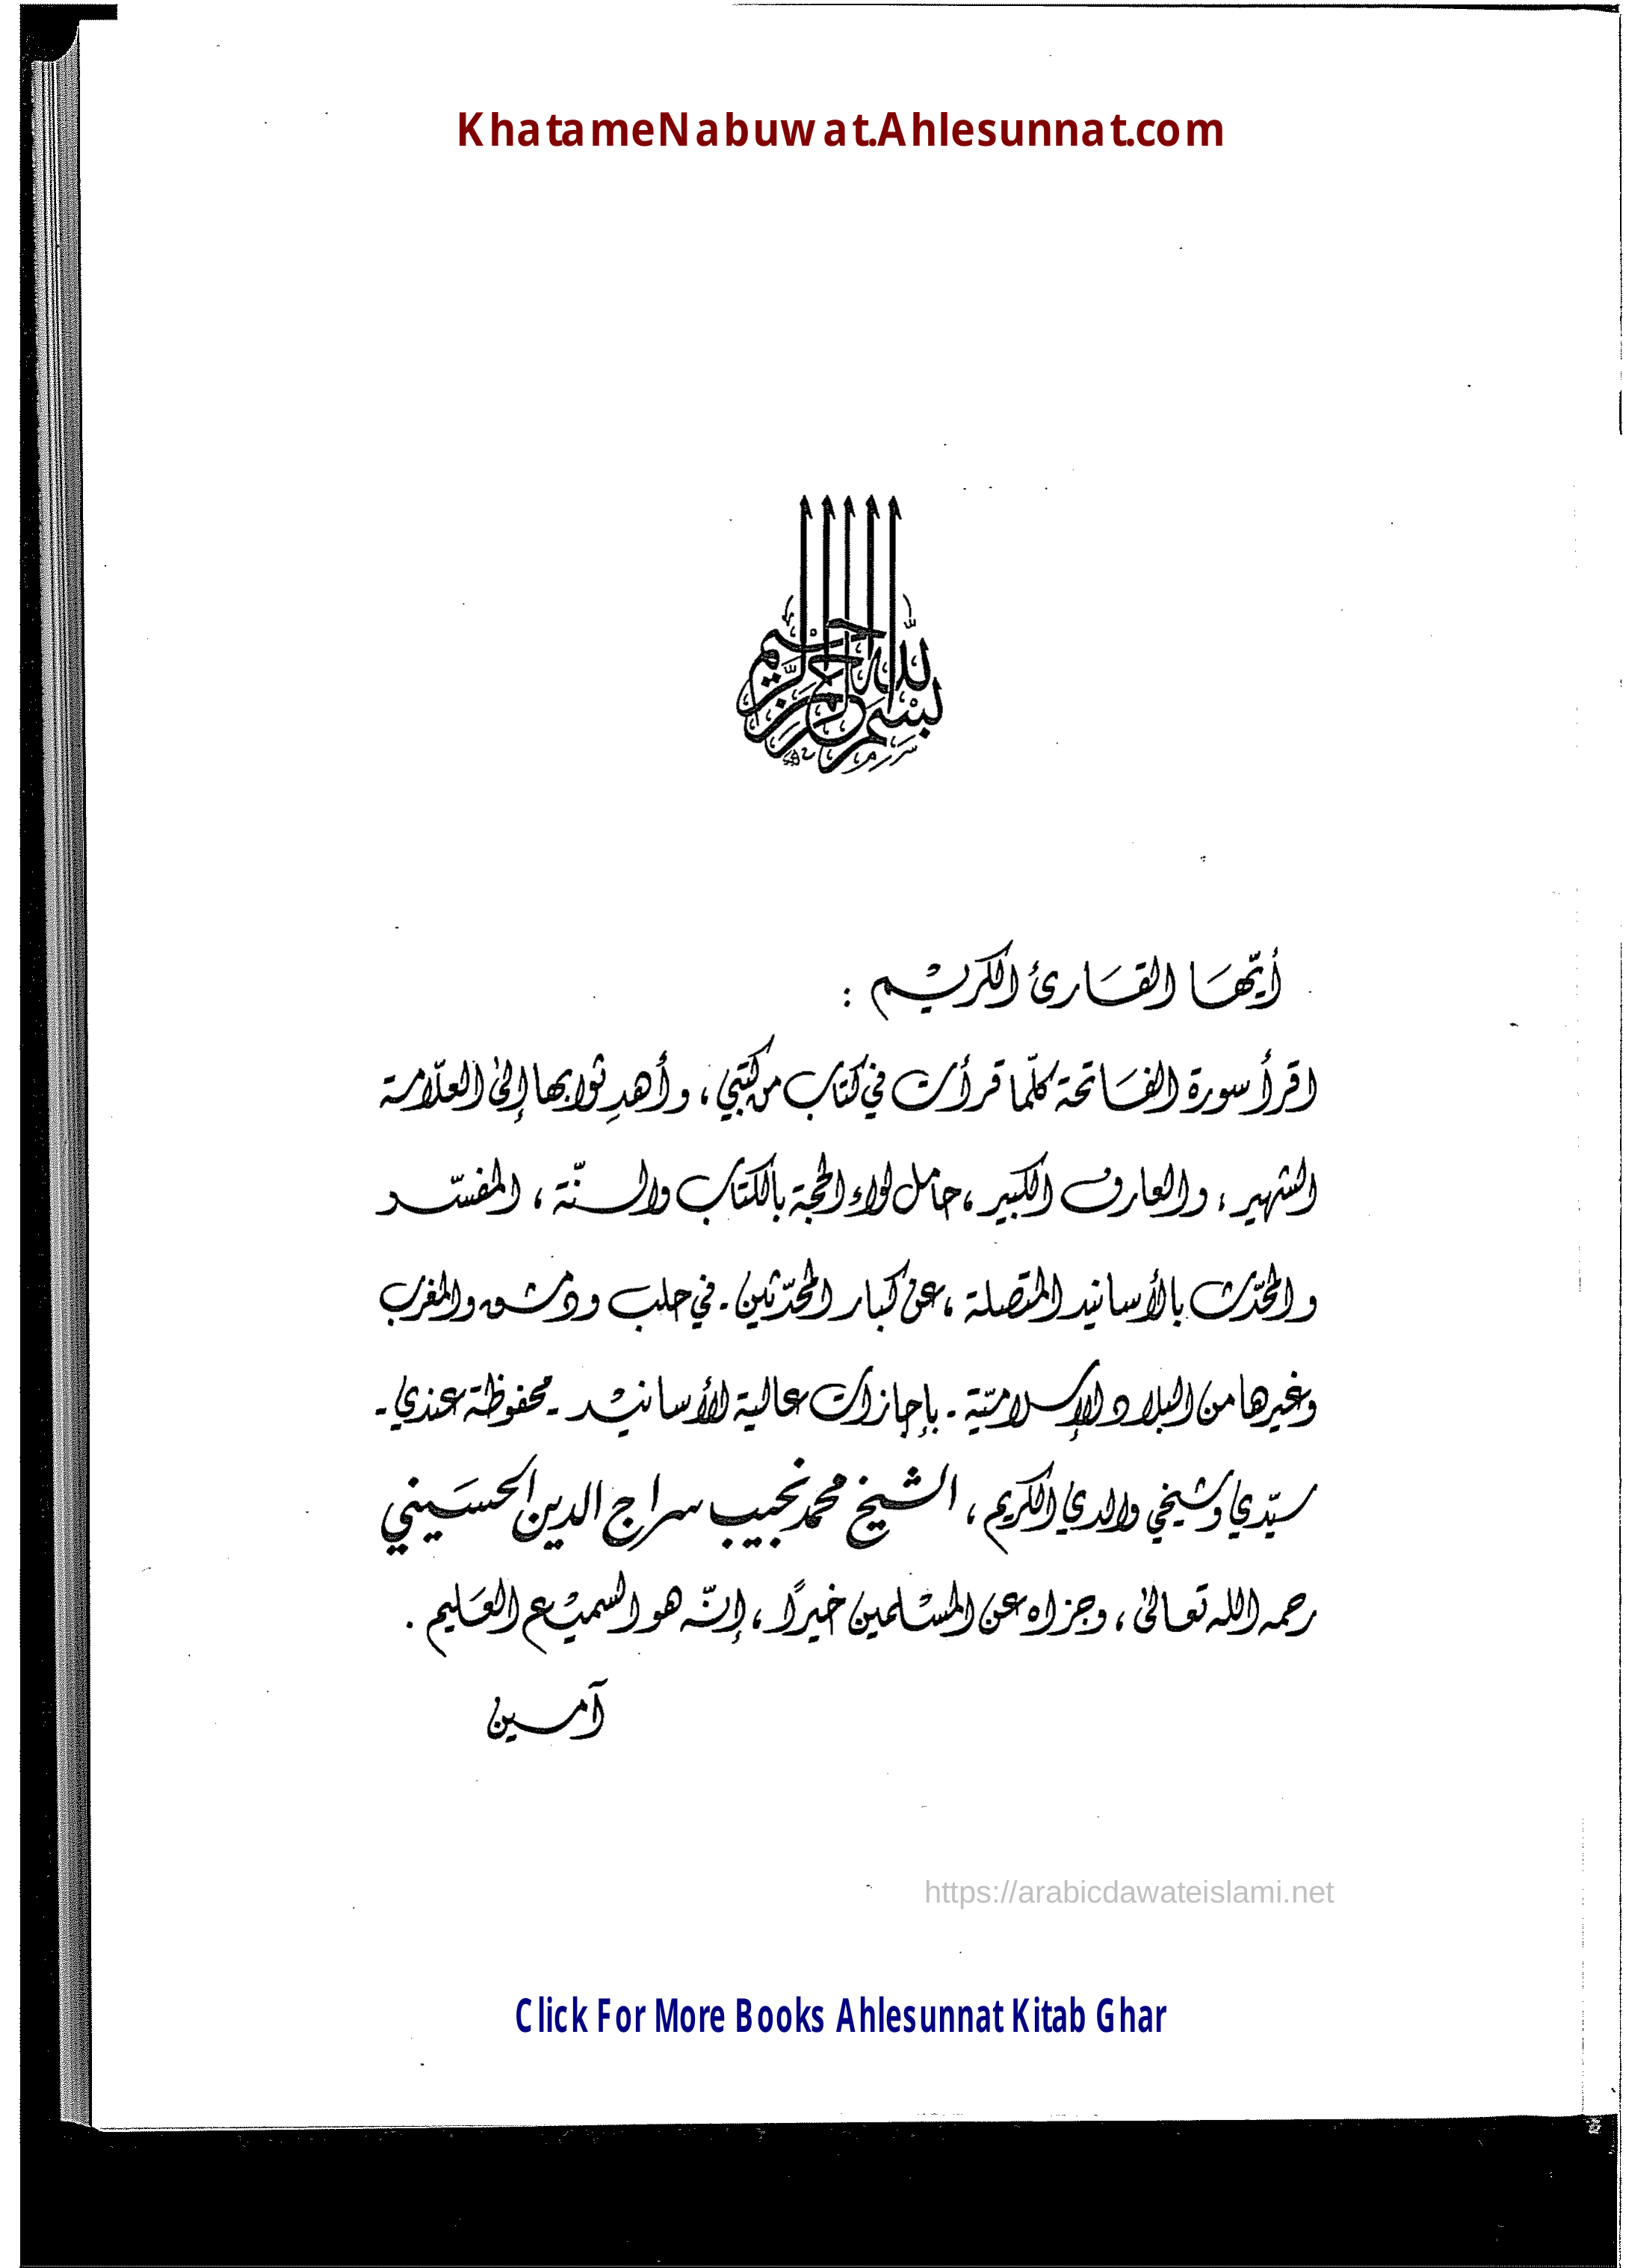 KhatameNabuwat.Ahlesunnat.com
بسم الله الرحمن الرحيم
أيّها القارئ الكريم :
اقرأ سورة الفاتحة كلّما قرأت في كتاب من كتبي ، وأهدِ ثوابها إلى العلّامة
الشهير ، والعارف الكبير ، حامل لواء الحجة بالكتاب والسنّة ، المفسّر
والمحدّث بالأسانيد المتصلة ، عن كبار المحدّثين - في حلب ودمشق والمغرب
وغيرها من البلاد الإسلاميّة - بإجازات عالية الأسانيد - محفوظة عندي -
سيّدي وشيخي والدي الكريم ، الشيخ محمد نجيب سراج الدين الحسَيني
رحمه الله تعالى ، وجزاه عن المسلمين خيرًا ، إنّه هو السميع العليم .
آمين
https://arabicdawateislami.net
Click For More Books Ahlesunnat Kitab Ghar